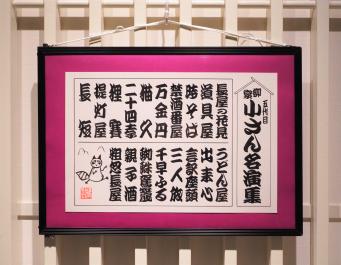 五代目
柳家
小さん名演集
長屋の花見
道具屋
時そば
禁酒番屋
万金丹
猫久
二十四孝
狸賽
提灯屋
長短
うどん屋
出来心
言訳座頭
三人旅
千早ふる
蜘蛛駕籠
親子酒
粗忽長屋